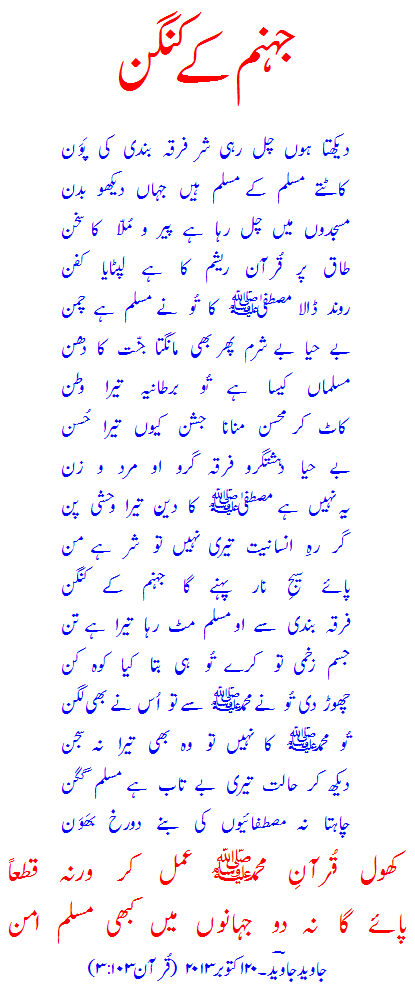 جہنم کے کنگن
دیکھتا ہوں چل رہی شر فرقہ بندی کی پَوَن
کاٹتے مسلم کے مسلم ہیں جہاں دیکھو بدن
مسجدوں میں چل رہا ہے پیر و مُلّا کا سخن
طاق پر قُرآن ریشم کا ہے لپٹایا کفن
روند ڈالا مصطفیٰ ﷺ کا تُو نے مسلم ہے چمن
بے حیا بے شرم پھر بھی مانگتا جنّت کا دھن
مسلماں کیسا ہے تُو برطانیہ تیرا وطن
کاٹ کر محسن منانا جشن کیوں تیرا حُسن
بے حیا دہشتگرو فرقہ گرو او مرد و زن
یہ نہیں ہے مصطفیٰ ﷺ کا دین تیرا وحشی پن
گر رہِ انسانیت تیری نہیں تو شر ہے من
پائے سیجِ نار پہنے گا جہنم کے کنگن
فرقہ بندی سے او مسلم مٹ رہا تیرا ہے تن
جسم زخمی تو کرے تُو ہی بتا کیا کوہ کن
چھوڑ دی تُو نے محمد ﷺ سے تو اُس نے بھی لگن
تُو محمد ﷺ کا نہیں تو وہ بھی تیرا نہ سجن
دیکھ کر حالت تیری بے تاب ہے مسلم گگن
چاہتا نہ مصطفائیوں کی بنے دورخ بھَوَن
کھول قُرآنِ محمد ﷺ عمل کر ورنہ قطعاً
پائے گا نہ دو جہانوں میں کبھی مسلم امن
جاوید جاوید۔ ۲۰ اکتوبر ۲۰۱۳ (قُرآن ۳:۱۰۳)